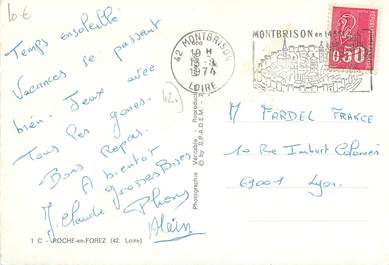 10€
Temps ensoleillé
Vacances se passant
bien. Jeux avec
Tous les gones.
Bons Repas.
A bientôt
Grosses Bises
J. Claude
Alain
42
1 C - ROCHE-en-FOREZ (42. Loire)
Photographie Véritable - Reproduction
© by S.P.A.D.E.M.
42 MONTBRISON
10 H
13-8
1974
LOIRE
MONTBRISON en 14
0,50
M FARDEL FRANCE
10 Rue Imbert Colomès
69001 Lyon